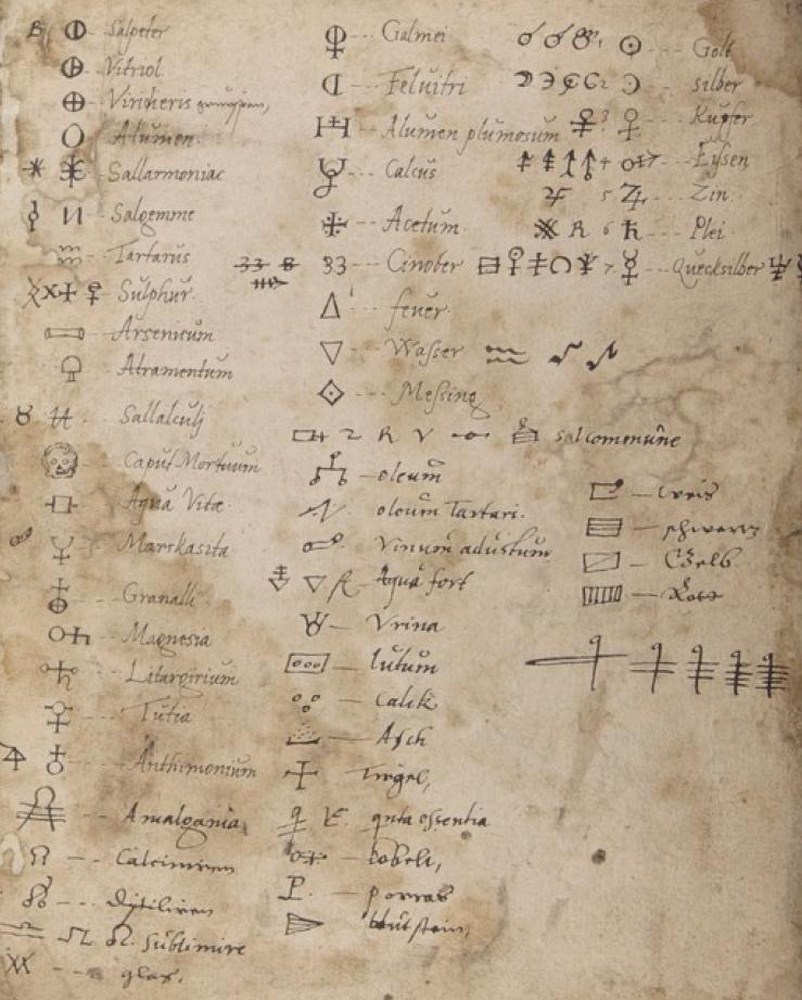 Salpeter
Vitriol
Viridieris
Alumen
Sallarmoniac
Salgemme
Tartarus
Sulphur
Arsenicum
Atramentum
Sallalculj
Caput Mortuum
Aqua Vitæ
Marckasita
Granalli
Magnesia
Litargirium
Tutia
Anthimonium
Amalgama
Calciniren
Distiliren
Sublimire
glas.
Galmei
Feluitri
Alumen plumosum
Calcus
Acetum
33 33 Cinober
feuer
Wasser
Messing
R V sal commune
oleum
oleum Tartari.
Vinum adustum
Aqua fort
Vrina
lutum
Calck
Asch
Tiegel,
quta essentia
P. porras
blutstein,
Golt
silber
3 Kupfer
4 Eysen
5 Zin
R 6 Plei
7 Quecksilber
weis
schwartz
Gelb
Rott